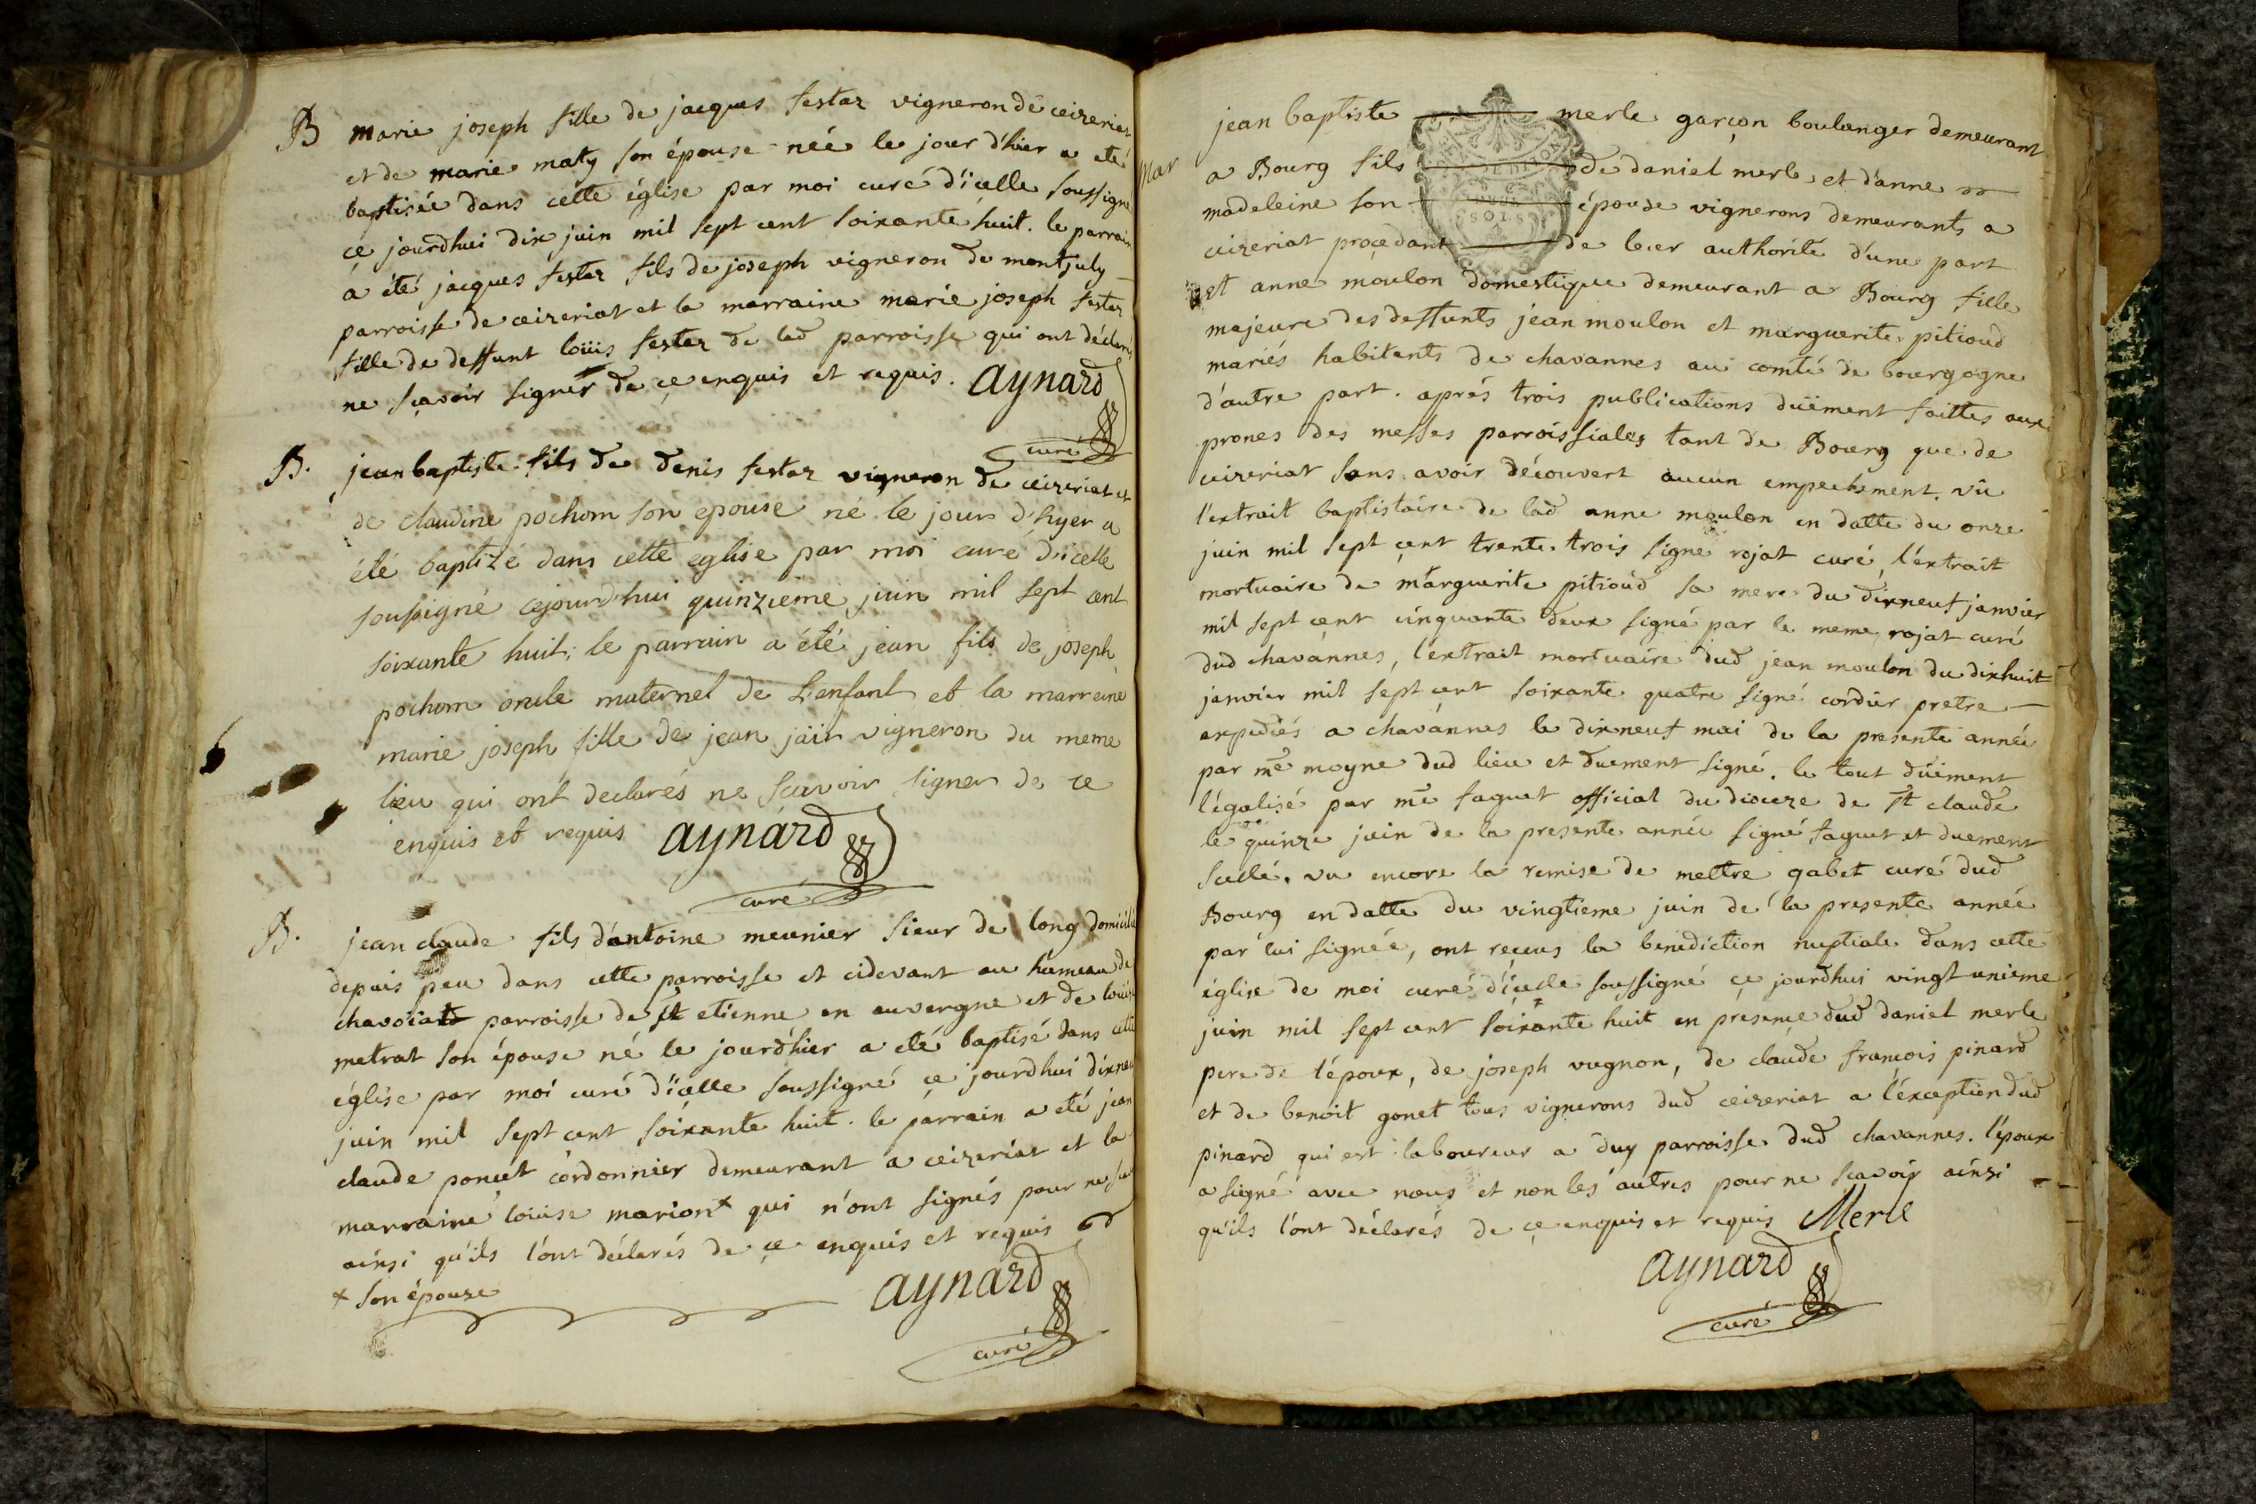 B marie joseph fille de jacques festaz vigneron de ceizeriat
et de marie maty son épouse née le jour d'hier a eté
baptisée dans cette église par moi curé d'icelle soussigné
ce jourdhui dix juin mil sept cent soixante huit. le parrain
a été jacques festaz fils de joseph vigneron de montjuly
parroisse de ceizeriat et la marraine marie joseph festaz
fille de deffunt loüis festaz de lad parroisse qui ont déclaré
ne sçavoir signer de ce enquis et requis. aynard
curé
B. jean baptiste fils de denis festaz vigneron de ceizeriat et
de claudine pochom son epouse né le jour d'hyer a
été baptizé dans cette eglise par moi curé d'icelle
soussigné cejourd'hui quinzieme juin mil sept cent
soixante huit; le parrain a été jean fils de joseph
pochom oncle maternel de L'enfant et la marreine
marie joseph fille de jean jair vigneron du meme
lieu qui ont declarés ne sçavoir signer de ce
enquis et requis aynard
curé
B. jean claude fils d'antoine meunier sieur de long domicilié
depuis peu dans cette parroisse et cidevant au hameau de
chavoiat parroisse de st etienne en auvergne et de loüise
metrat son épouse né le jourd'hier a eté baptisé dans cette
église par moi curé d'icelle soussigné ce jourdhui dixneuf
juin mil sept cent soixante huit. le parrain a eté jean
claude poncet cordonnier demeurant a ceizeriat et la
marraine loüise marion x qui n'ont signés pour ne sca
ainsi qu'ils l'ont déclarés de ce enquis et requis
x son épouse aynard
curé
jean baptiste merle garçon boulanger demeurant
Mar a Bourg fils de daniel merle et d'anne
madeleine son épouse vignerons demeurants a
ceizeriat procedant de leur authorite d'une part
et anne moulon domestique demeurant a Bourg fille
majeure des deffunts jean moulon et marguerite pitioud
mariés habitants de chavannes au comté de bourgogne
d'autre part. aprés trois publications düement faittes aux
prones des messes parroissiales tant de Bourg que de
ceizeriat sans avoir découvert aucun empechement, vû
l'extrait baptistaire de lad anne moulon en datte du onze
juin mil sept cent trente trois signé rojat curé, l'extrait
mortuaire de marguerite pitioud sa mere du dixneuf janvier
mil sept cent cinquante deux signé par le meme rojat curé
dud chavannes, l'extrait mortuaire dud jean moulon du dixhuit
janvier mil sept cent soixante quatre signé cordier pretre
expediés a chavannes le dixneuf mai de la presente année
par me moyne dud lieu et duement signé. le tout düement
légalisé par me faguet official du dioceze de st claude
le quinze juin de la presente année signé faguet et duement
scellé. vu encore la remise de mettre gabet curé dud
Bourg en datte du vingtieme juin de la presente année
par lui signée, ont reçeus la benediction nuptiale dans cette
église de moi curé d'icelle soussigné ce jourdhui vingt unieme
juin mil sept cent soixante huit en presence dud daniel merle
pere de l'époux, de joseph vugnon, de claude françois pinard
et de benoit gonet tous vignerons dud ceizeriat a l'exception dud
pinard qui est laboureur a duy parroisse dud chavannes. l'époux
a signé avec nous et non les autres pour ne sçavoir ainsi
qu'ils l'ont déclarés de ce enquis et requis Merle
aynard
curé